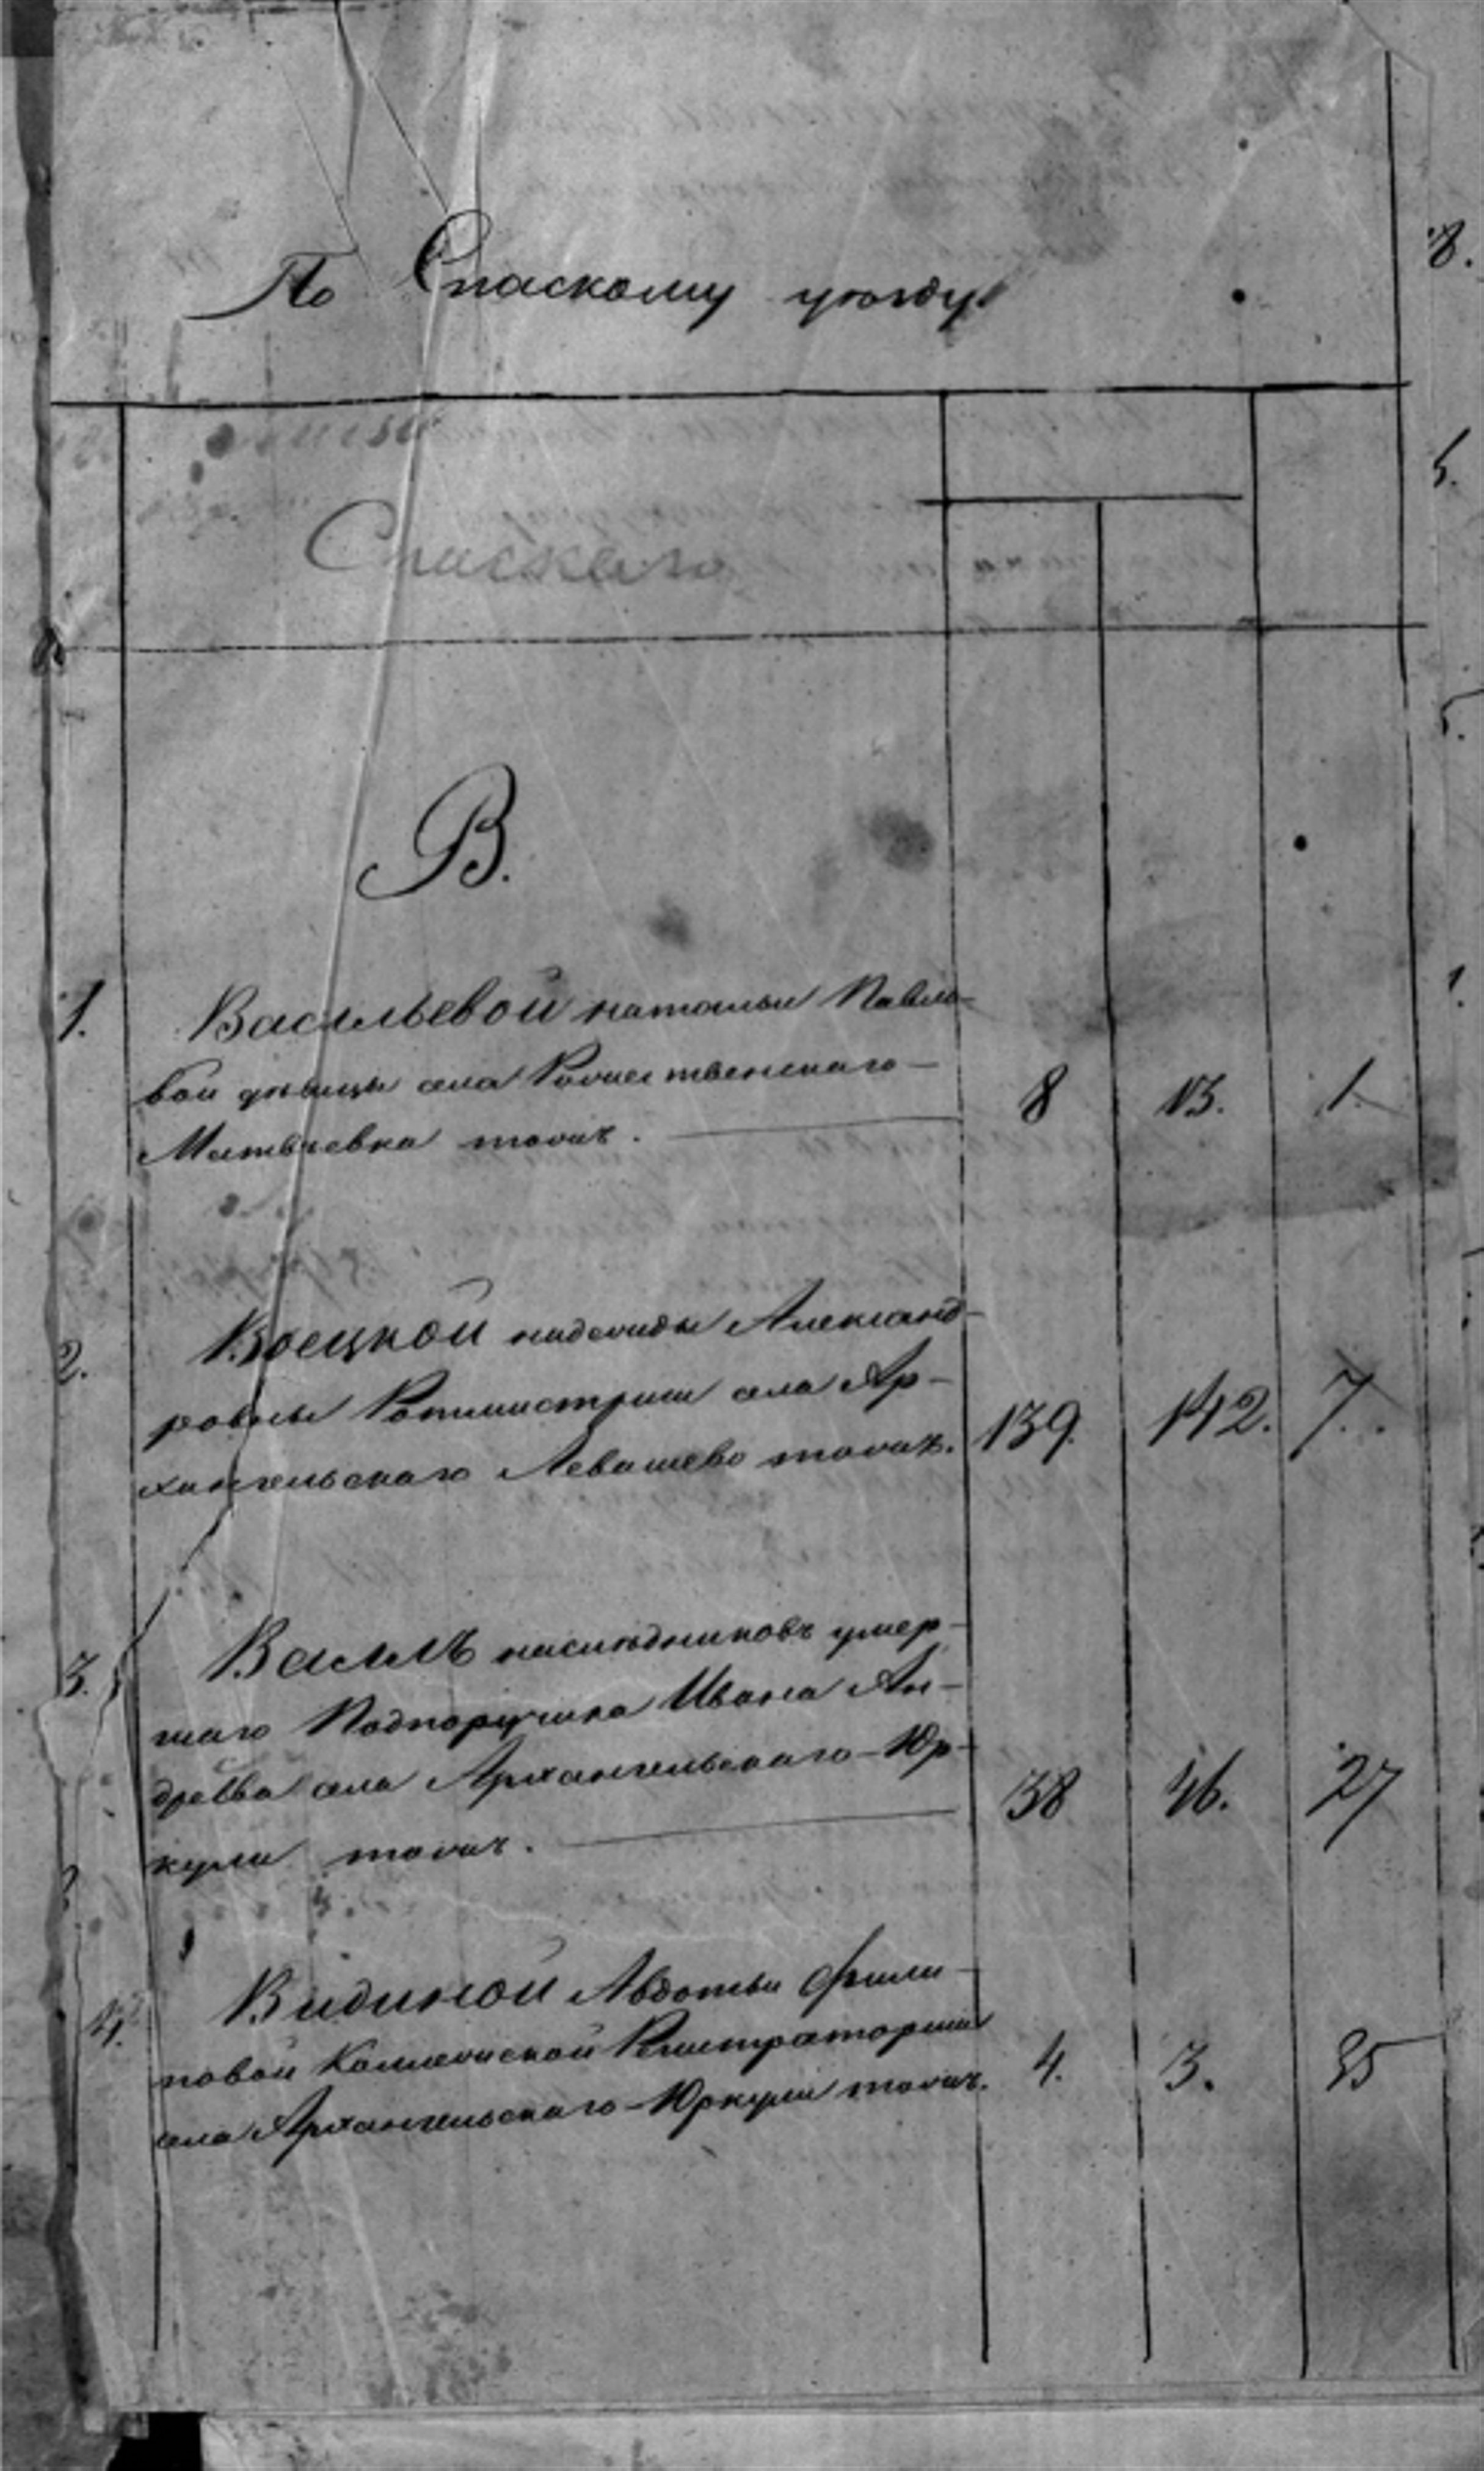 По Спаскому уѣзду
Спаскаго
В.
1. Васильевой Натальи Павло-
вой дѣвицы села Рожественскаго
Матвѣевка тожъ. 8 13. 1.
2. Воецкой Надежды Александ-
ровны Ротмистрши села Ар-
хангельскаго Левашево тожъ. 139. 142. 7.
3. наслѣдниковъ умер-
шаго Подпоручика Ивана Ан-
дреева села Архангельскаго-Юр-
кули тожъ. 38 46. 27
4. Видиной Авдотьи Фили-
повой Коллежской Регистраторши
села Архангельскаго-Юркули тожъ. 4. 3. 35